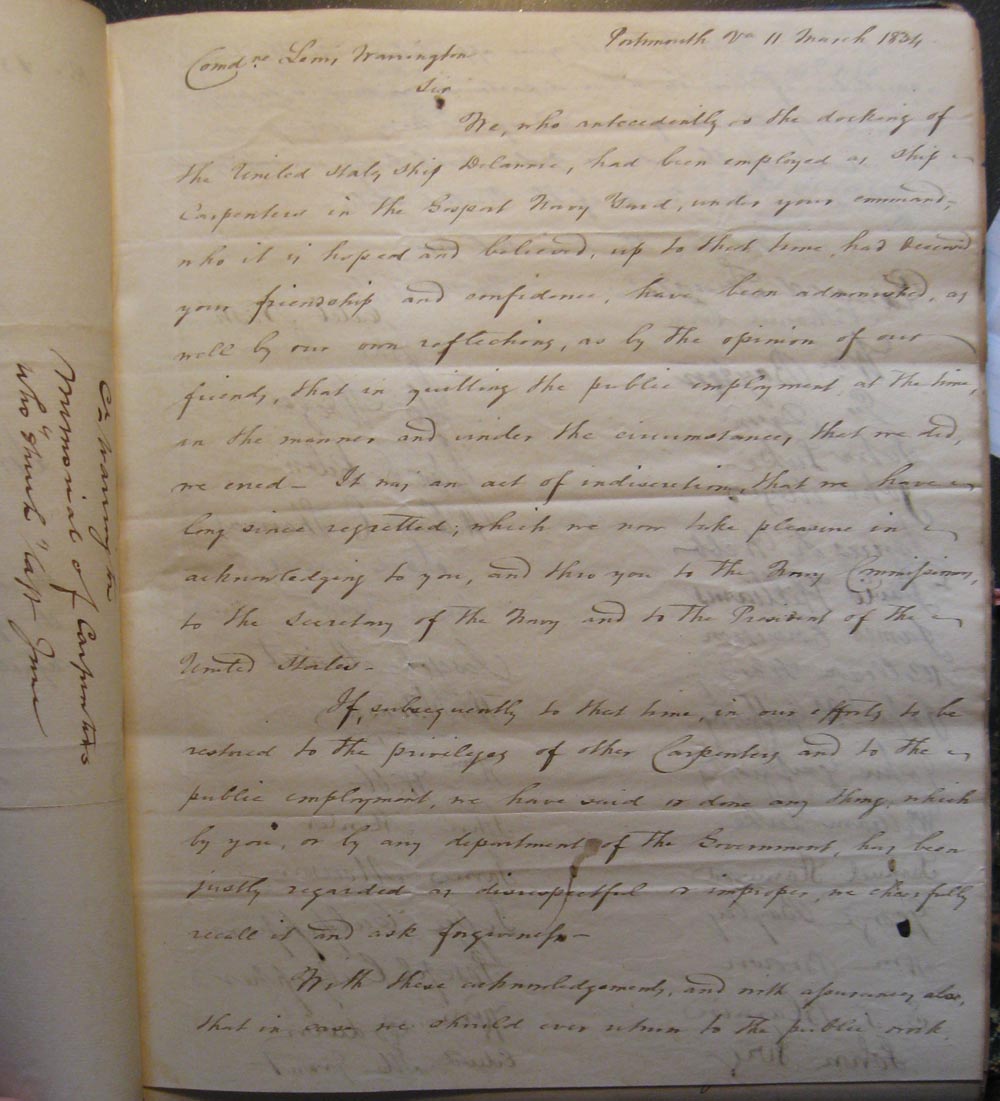 Portsmouth Va 11 March 1834
Comdre Lewis Warrington
Sir
We, who antecedently to the docking of
the United States Ship Delaware, had been employed as ship
Carpenters in the Gosport Navy Yard, under your command,
who it is hoped and believed, up to that time, had deserved
your friendship and confidence, have been admonished, as
well by our own reflections, as by the opinion of our
friends, that in quitting the public employment at the time,
in the manner and under the circumstances that we did,
we erred - It was an act of indiscretion, that we have
long since regretted; which we now take pleasure in
acknowledging to you, and thro you to the Navy Commissioners,
to the Secretary of the Navy and to the President of the
United States -
If, subsequently to that time, in our efforts to be
restored to the privileges of other Carpenters and to the
public employment, we have said or done any thing, which
by you, or by any department of the Government, has been
justly regarded as disrespectful or improper, we cheerfully
recall it and ask forgiveness -
With these acknowledgements, and with assurances also,
that in case we should ever return to the public work
Co Warrington
Memorial of Carpenters
who "struck" last June